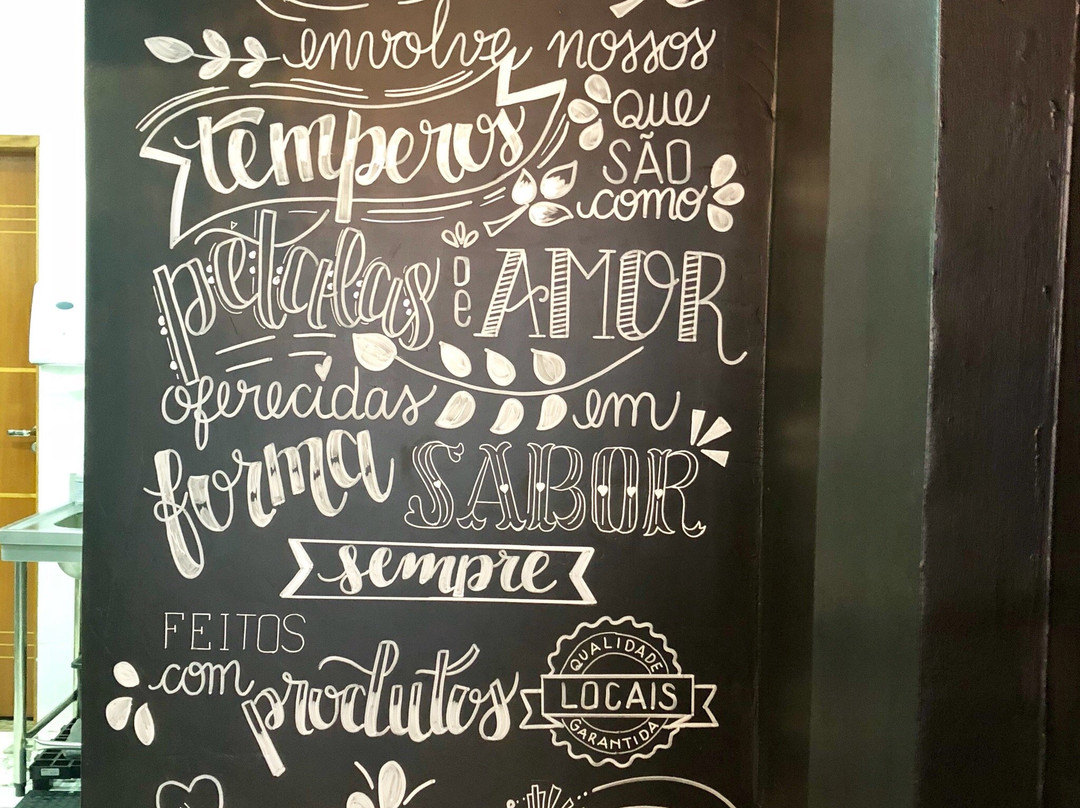 envolve nossos
temperos que
são
como
pétalas de AMOR
oferecidas em
forma SABOR
sempre
FEITOS
com produtos
QUALIDADE
LOCAIS
GARANTIDA